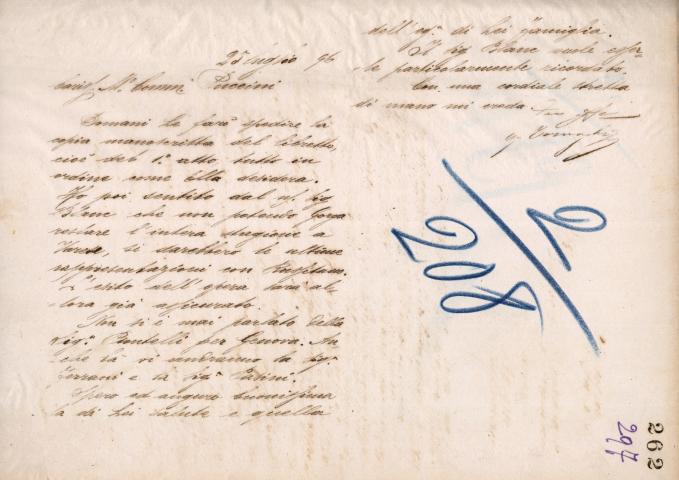 25 luglio 96
Caris. M.° Comm. Puccini
Domani Le farò spedire la
copia manoscritta del libretto,
cioè del 1.° atto, tutto in
ordine come Ella desidera.
Ho poi sentito dal s/ Sig.
Blanc che non potendo
l'intera stagione a
si darebbero le ultime
rappresentazioni con
L'esito dell'opera sarà al-
lora già assicurato.
Non si è mai parlato della
Sig.ª per Genova. An-
che là vi andranno la Sig.ª
Ferrani e la Sig.ª Pasini.
Spero ed auguro buonissima
la di Lei salute e quella
dell'eg.ª di Lei famiglia.
Il Sig. Blanc vuole esser-
le particolarmente ricordato.
Con una cordiale stretta
di mano mi creda
2/208
262
297